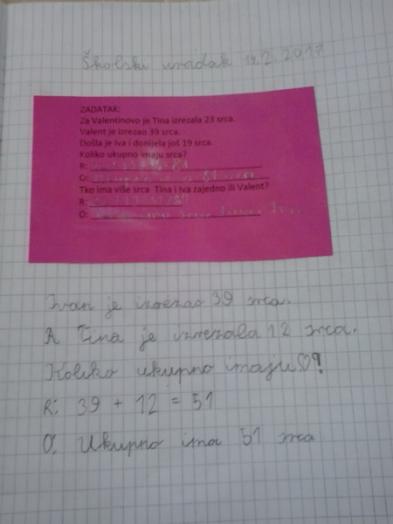 Školski uradak 14.2.2017
ZADATAK:
Za Valentinovo je Tina izrezala 23 srca.
Valent je izrezao 39 srca.
Došla je Iva i donijela još 19 srca.
Koliko ukupno imaju srca?
R:
O:
Tko ima više srca Tina i Iva zajedno ili Valent?
R:
O:
Ivan je izrezao 39 srca.
A Tina je izrezala 12 srca.
Koliko ukupno imaju ♡?
R: 39 + 12 = 51
O: Ukupno ima 51 srca